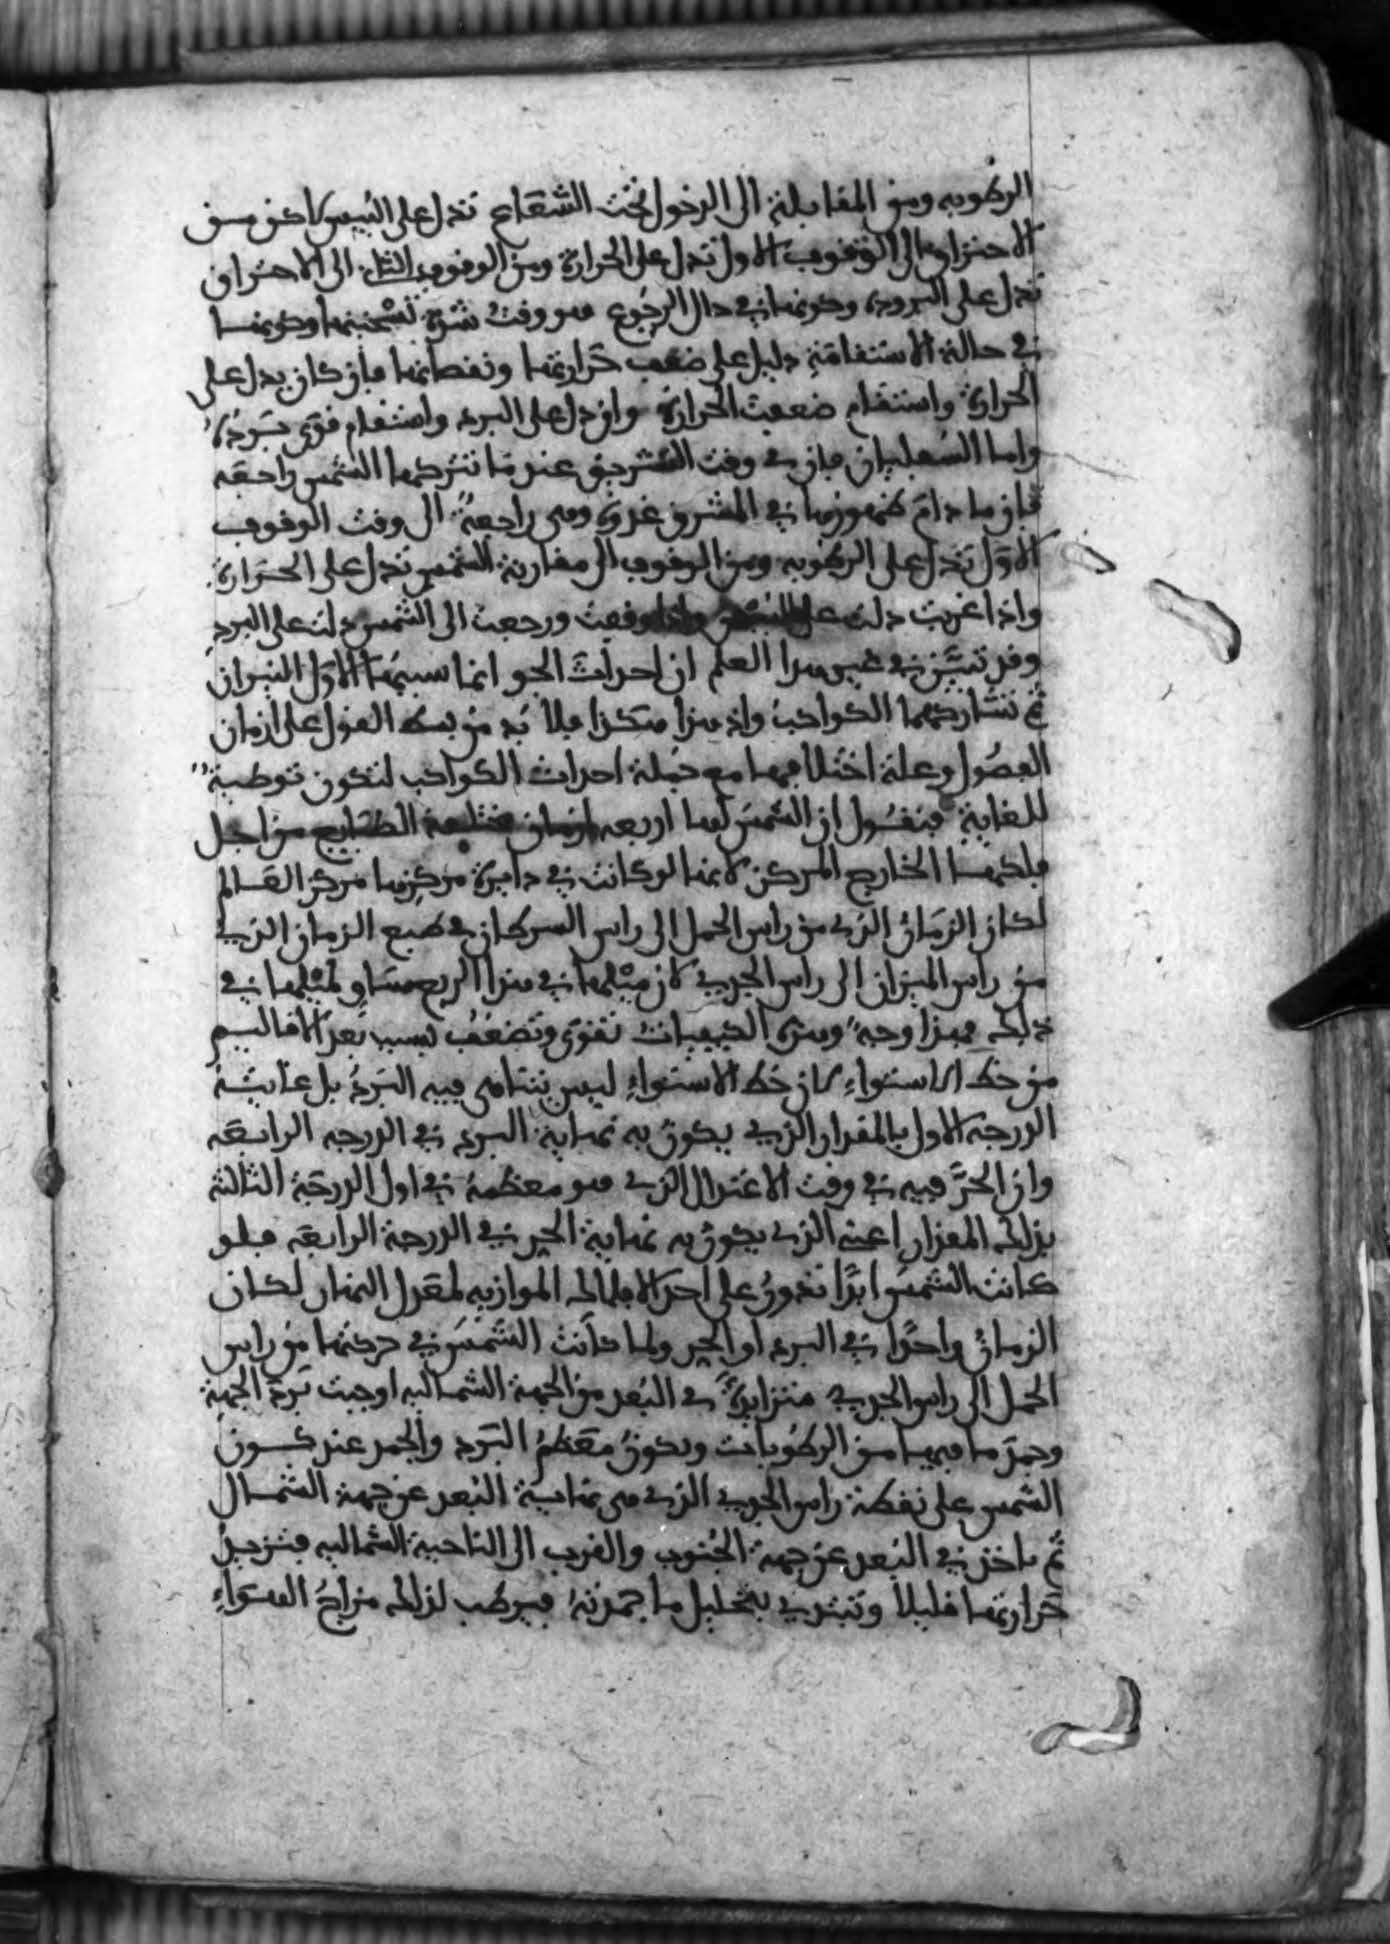 الرطوبه ومن المقابلة الى الدخول تحت الشعاع تدل على اليبس لاكن من
الاحتراق الى الوقوف الاول تدل على الحرارة ومن الوقوف الثانى الى الاحتراق
تدل على البرودة وكونها في حال الرجوع هو وقت شدة تسخينها وكونها
في حالة الاستقامة دليل على ضعف حرارتها ونقصانها فان كان يدل على
الحرارة واستقام ضعفت الحرارة وان دل على البرد واستقام قوي برده
واما السفليان فان في وقت التشريق عند ما تتركهما الشمس راجعه
فان ما دام ظهورها في المشرق غدوة وهى راجعة الى وقت الوقوف
الاول تدل على الرطوبه ومن الوقوف الى مقاربة الشمس تدل على الحرارة
واذا غربت دلت على اليبس واذا وقفت ورجعت الى الشمس دلت على البرد
وقد تبين في غير هذا العلم ان احداث الجو انما سببها الاول النيران
ثم تشاركهما الكواكب واذ هذا هكذا فلا بد من بسط القول على ازمان
الفصول وعلة اختلافها مع جملة احداث الكواكب لتكون توطية
للغاية فنقول ان الشمس لها اربعه ازمان مختلفة الطبايع من اجل
فلكها الخارج المركز لانها لو كانت في دايرة مركزها مركز العالم
لكان الزمان الذي من راس الحمل الى راس السرطان في طبع الزمان الذي
من راس الميزان الى راس الجدي لان ميلها في هذا الربع مساو لميلها في
ذلك فهذا وجه وهذه الكيفيات تقوى وتضعف بسبب بعد الاقاليم
من خط الاستواء لان خط الاستواء ليس يتناهى فيه البرد بل غايته
الدرجه الاول بالمقدار الذي يكون به نهاية البرد في الدرجه الرابعه
وان الحر فيه في وقت الاعتدال الذي هو معظمه في اول الدرجة الثالثة
بذلك المقدار اعني الذي يكون به نهاية الحر في الدرجة الرابعه فلو
كانت الشمس ابدا تدور على احد الافلاك الموازيه لمعدل النهار لكان
الزمان واحدا في البرد او الحر ولما كانت الشمس في حركتها من راس
الحمل الى راس الجدي متزايدة في البعد من الجهة الشماليه اوجبت برد الجهة
وجمد ما فيها من الرطوبات ويكون معظم البرد والجمد عند كون
الشمس على نقطة راس الجدي الذي هى نهاية البعد عن جهة الشمال
ثم تاخذ في البعد عن جهة الجنوب والقرب الى الناحية الشماليه فتزيد
حرارتها قليلا وتبتدي بتحليل ما جمدته فيرطب لذلك مزاج الهواء